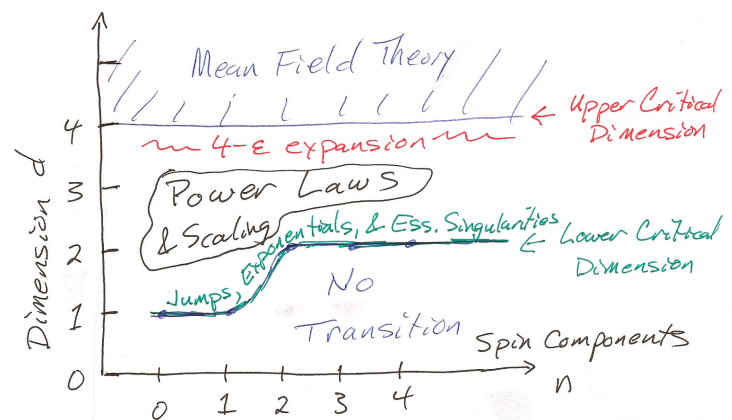 Mean Field Theory
4
← Upper Critical
Dimension
4-ε expansion
Dimension d
3
Power Laws
& Scaling
Jumps, Exponentials, & Ess. Singularities
2
← Lower Critical
Dimension
No
Transition
1
Spin Components
n
0
0 1 2 3 4